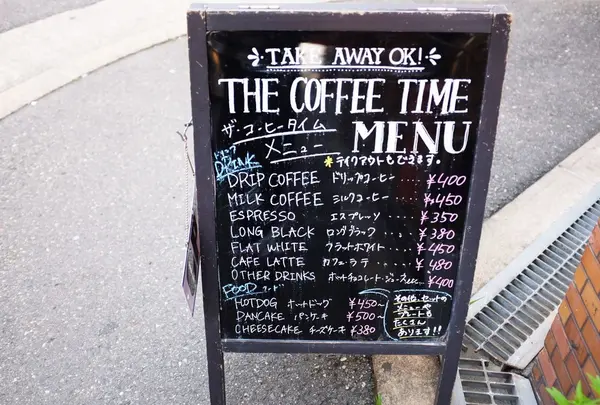 TAKE AWAY OK!
THE COFFEE TIME
ザ・コーヒータイム
MENU
メニュー
*テイクアウトもできます。
ドリンク
DRINK
DRIP COFFEE ドリップコーヒー ・・・・ ¥400
MILK COFFEE ミルクコーヒー ・・・・ ¥450
ESPRESSO エスプレッソ ・・・・ ¥350
LONG BLACK ロングブラック ・・・・ ¥380
FLAT WHITE フラットホワイト ・・・・ ¥450
CAFE LATTE カフェ・ラテ ・・・・・ ¥480
OTHER DRINKS ホットチョコレート・ジュースetc... ¥400
FOOD フード
HOTDOG ホットドッグ ¥450~
PANCAKE パンケーキ ¥500~
CHEESECAKE チーズケーキ ¥380
その他、セットの
メニューや
プレートも
たくさん
あります!!